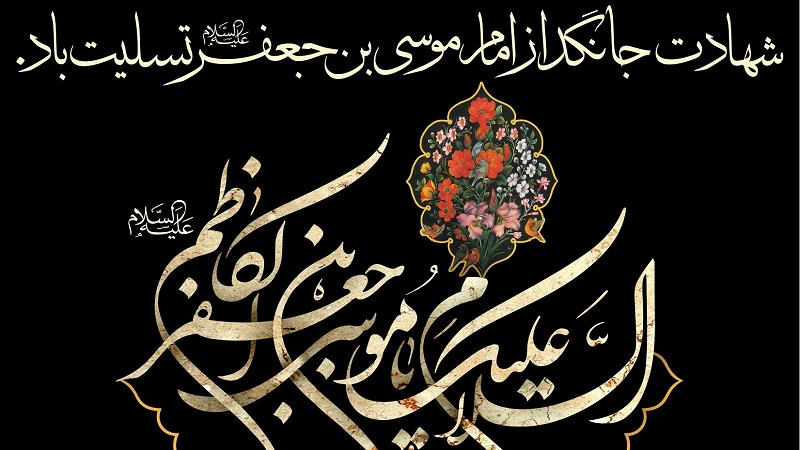 شهادت جانگداز امام موسی بن جعفر علیه‌السلام تسلیت باد.
السلام علیک یا موسی بن جعفر الکاظم
علیه السلام